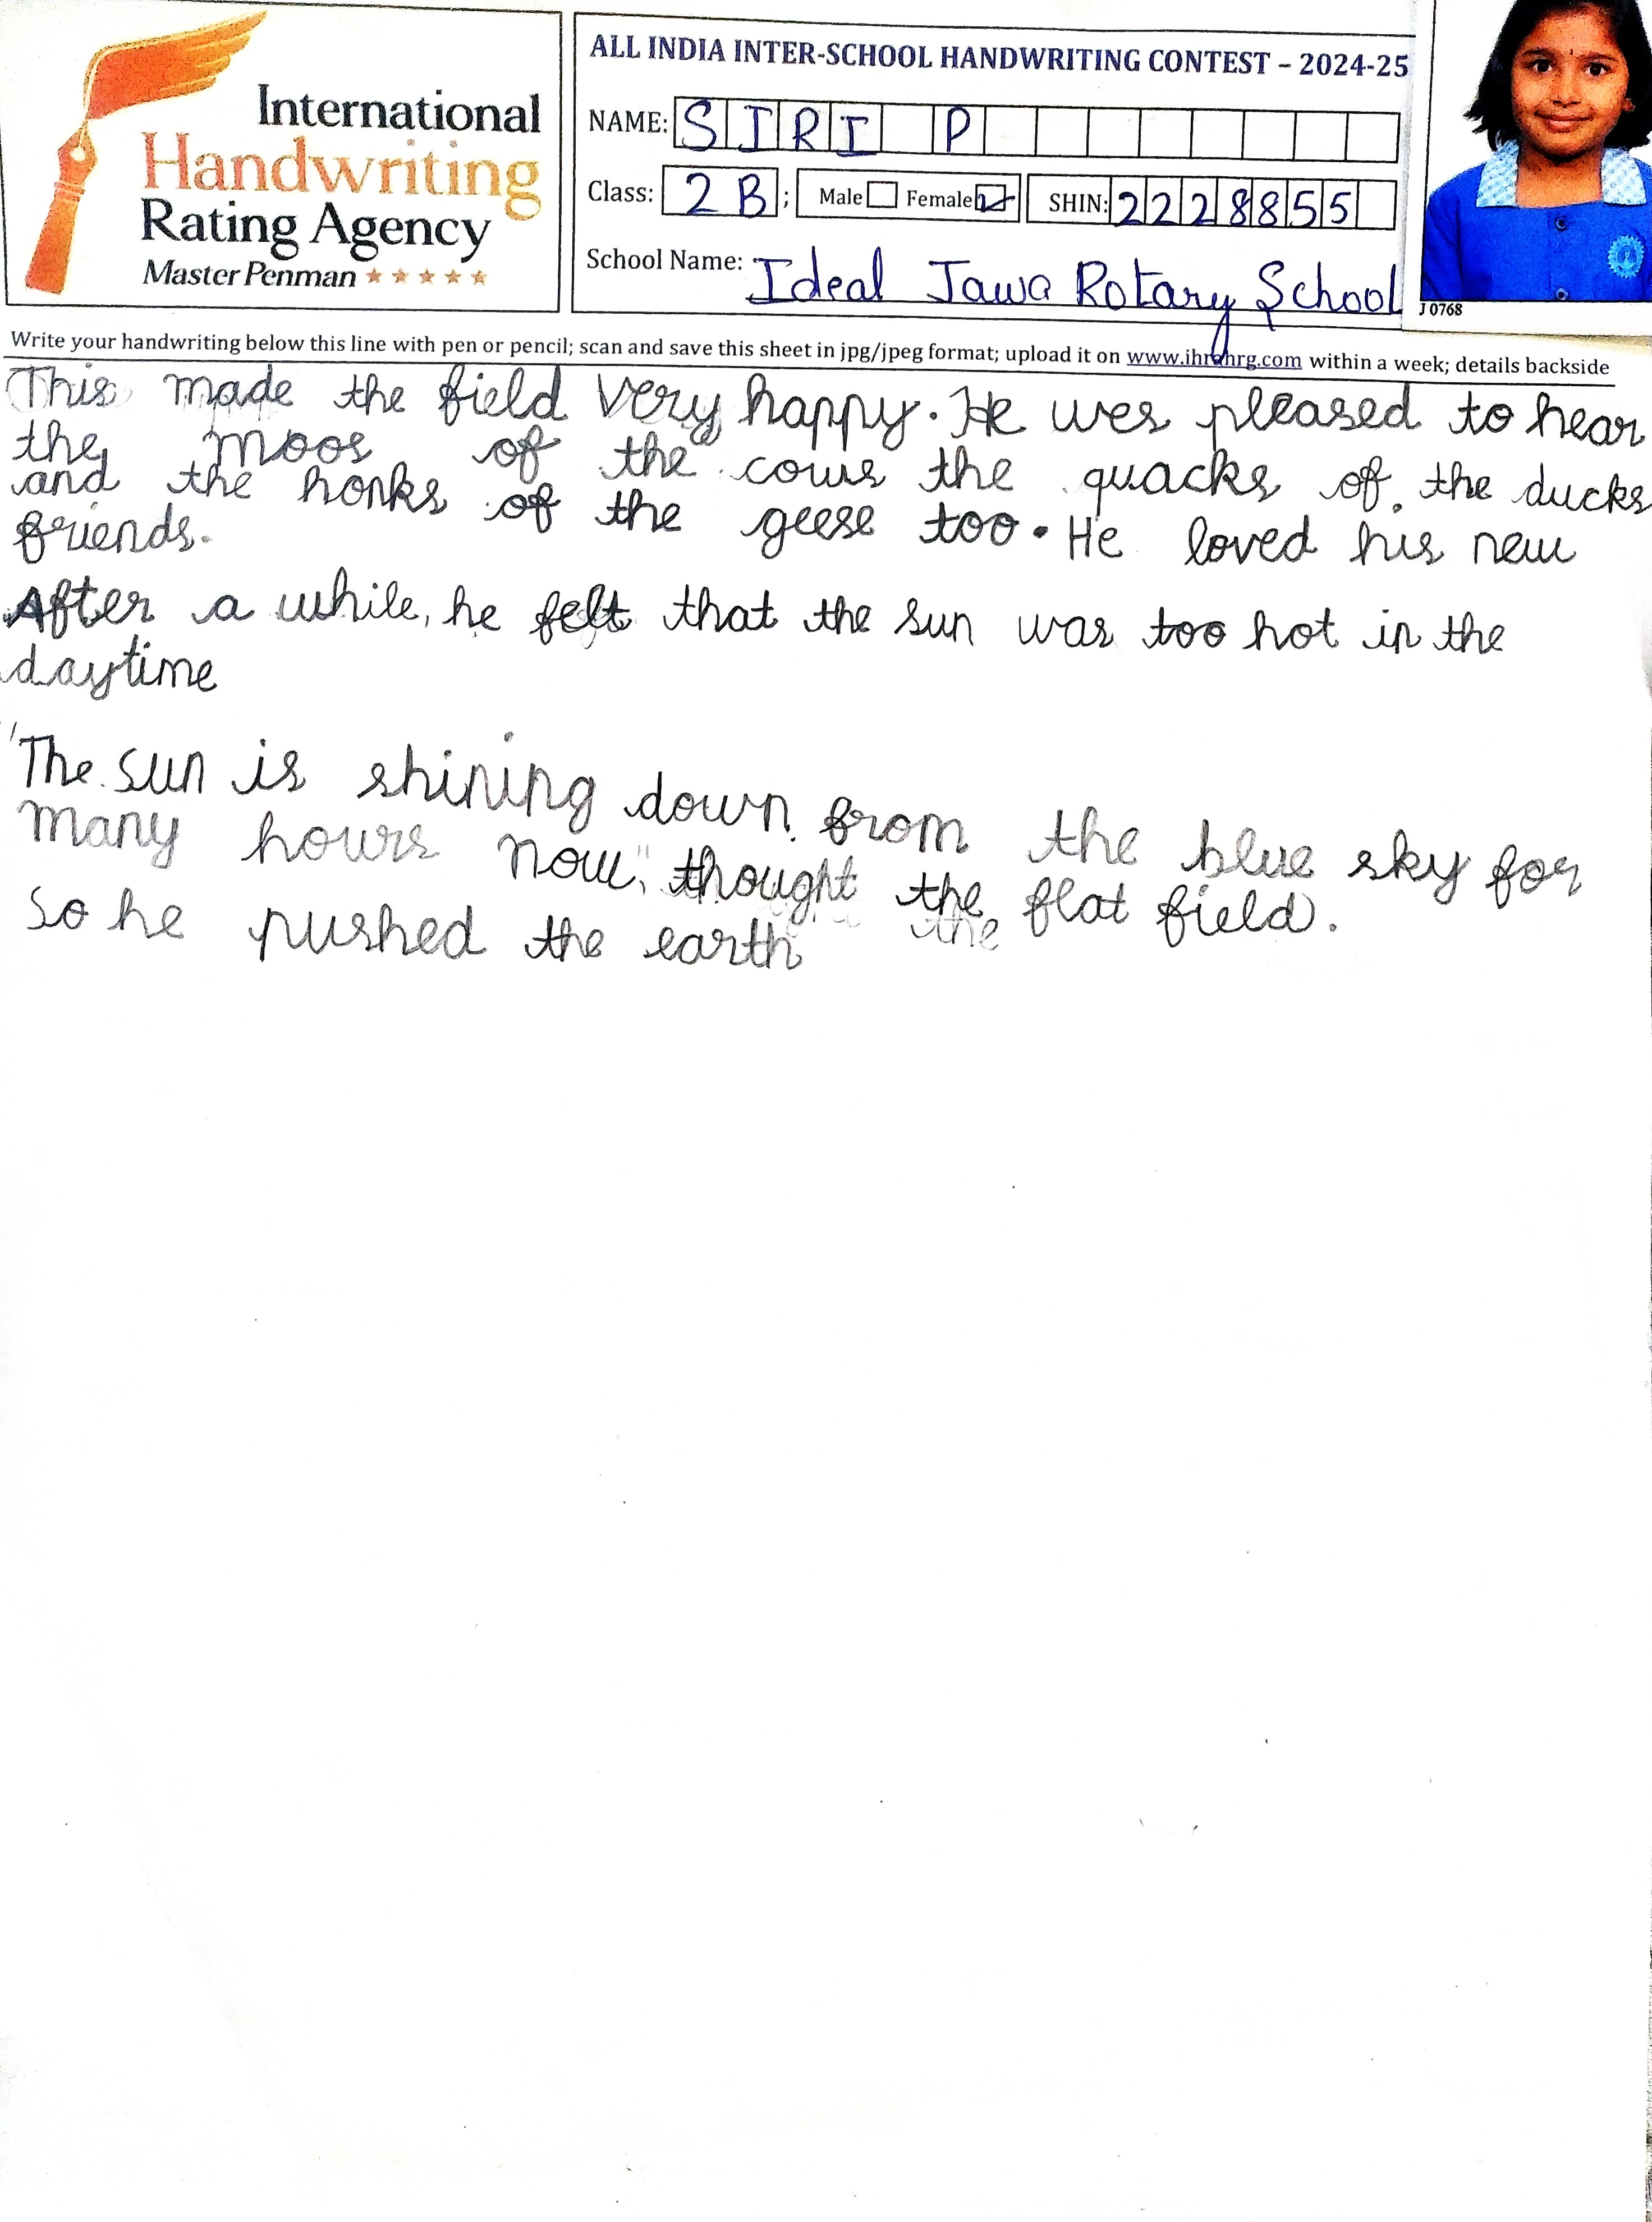 International
Handwriting
Rating Agency
Master Penman
ALL INDIA INTER-SCHOOL HANDWRITING CONTEST – 2024-25
NAME: SIRI P
Class: 2 B ; Male Female SHIN: 2228855
School Name: Ideal Jawa Rotary School
J 0768
Write your handwriting below this line with pen or pencil; scan and save this sheet in jpg/jpeg format; upload it on www.ihrahrg.com within a week; details backside
This made the field very happy. He wes pleased to hear
the moos of the cows the quacks of the ducks
and the honks of the geese too. He loved his new
friends.
After a while, he felt that the sun was too hot in the
daytime
"The sun is shining down from the blue sky for
many hours now," thought the flat field.
So he pushed the earth the